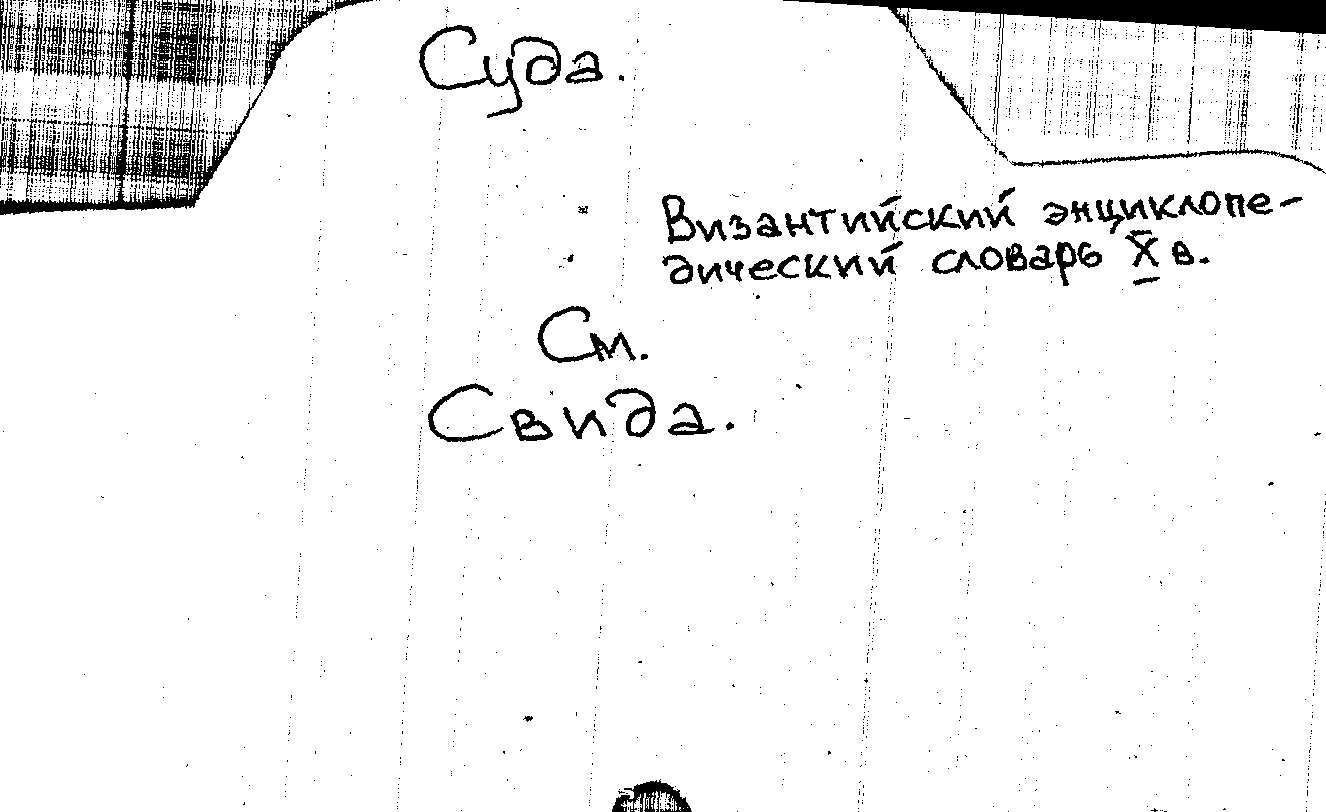 Суда.
Византийский энциклопе-
дический словарь X в.
См.
Свида.